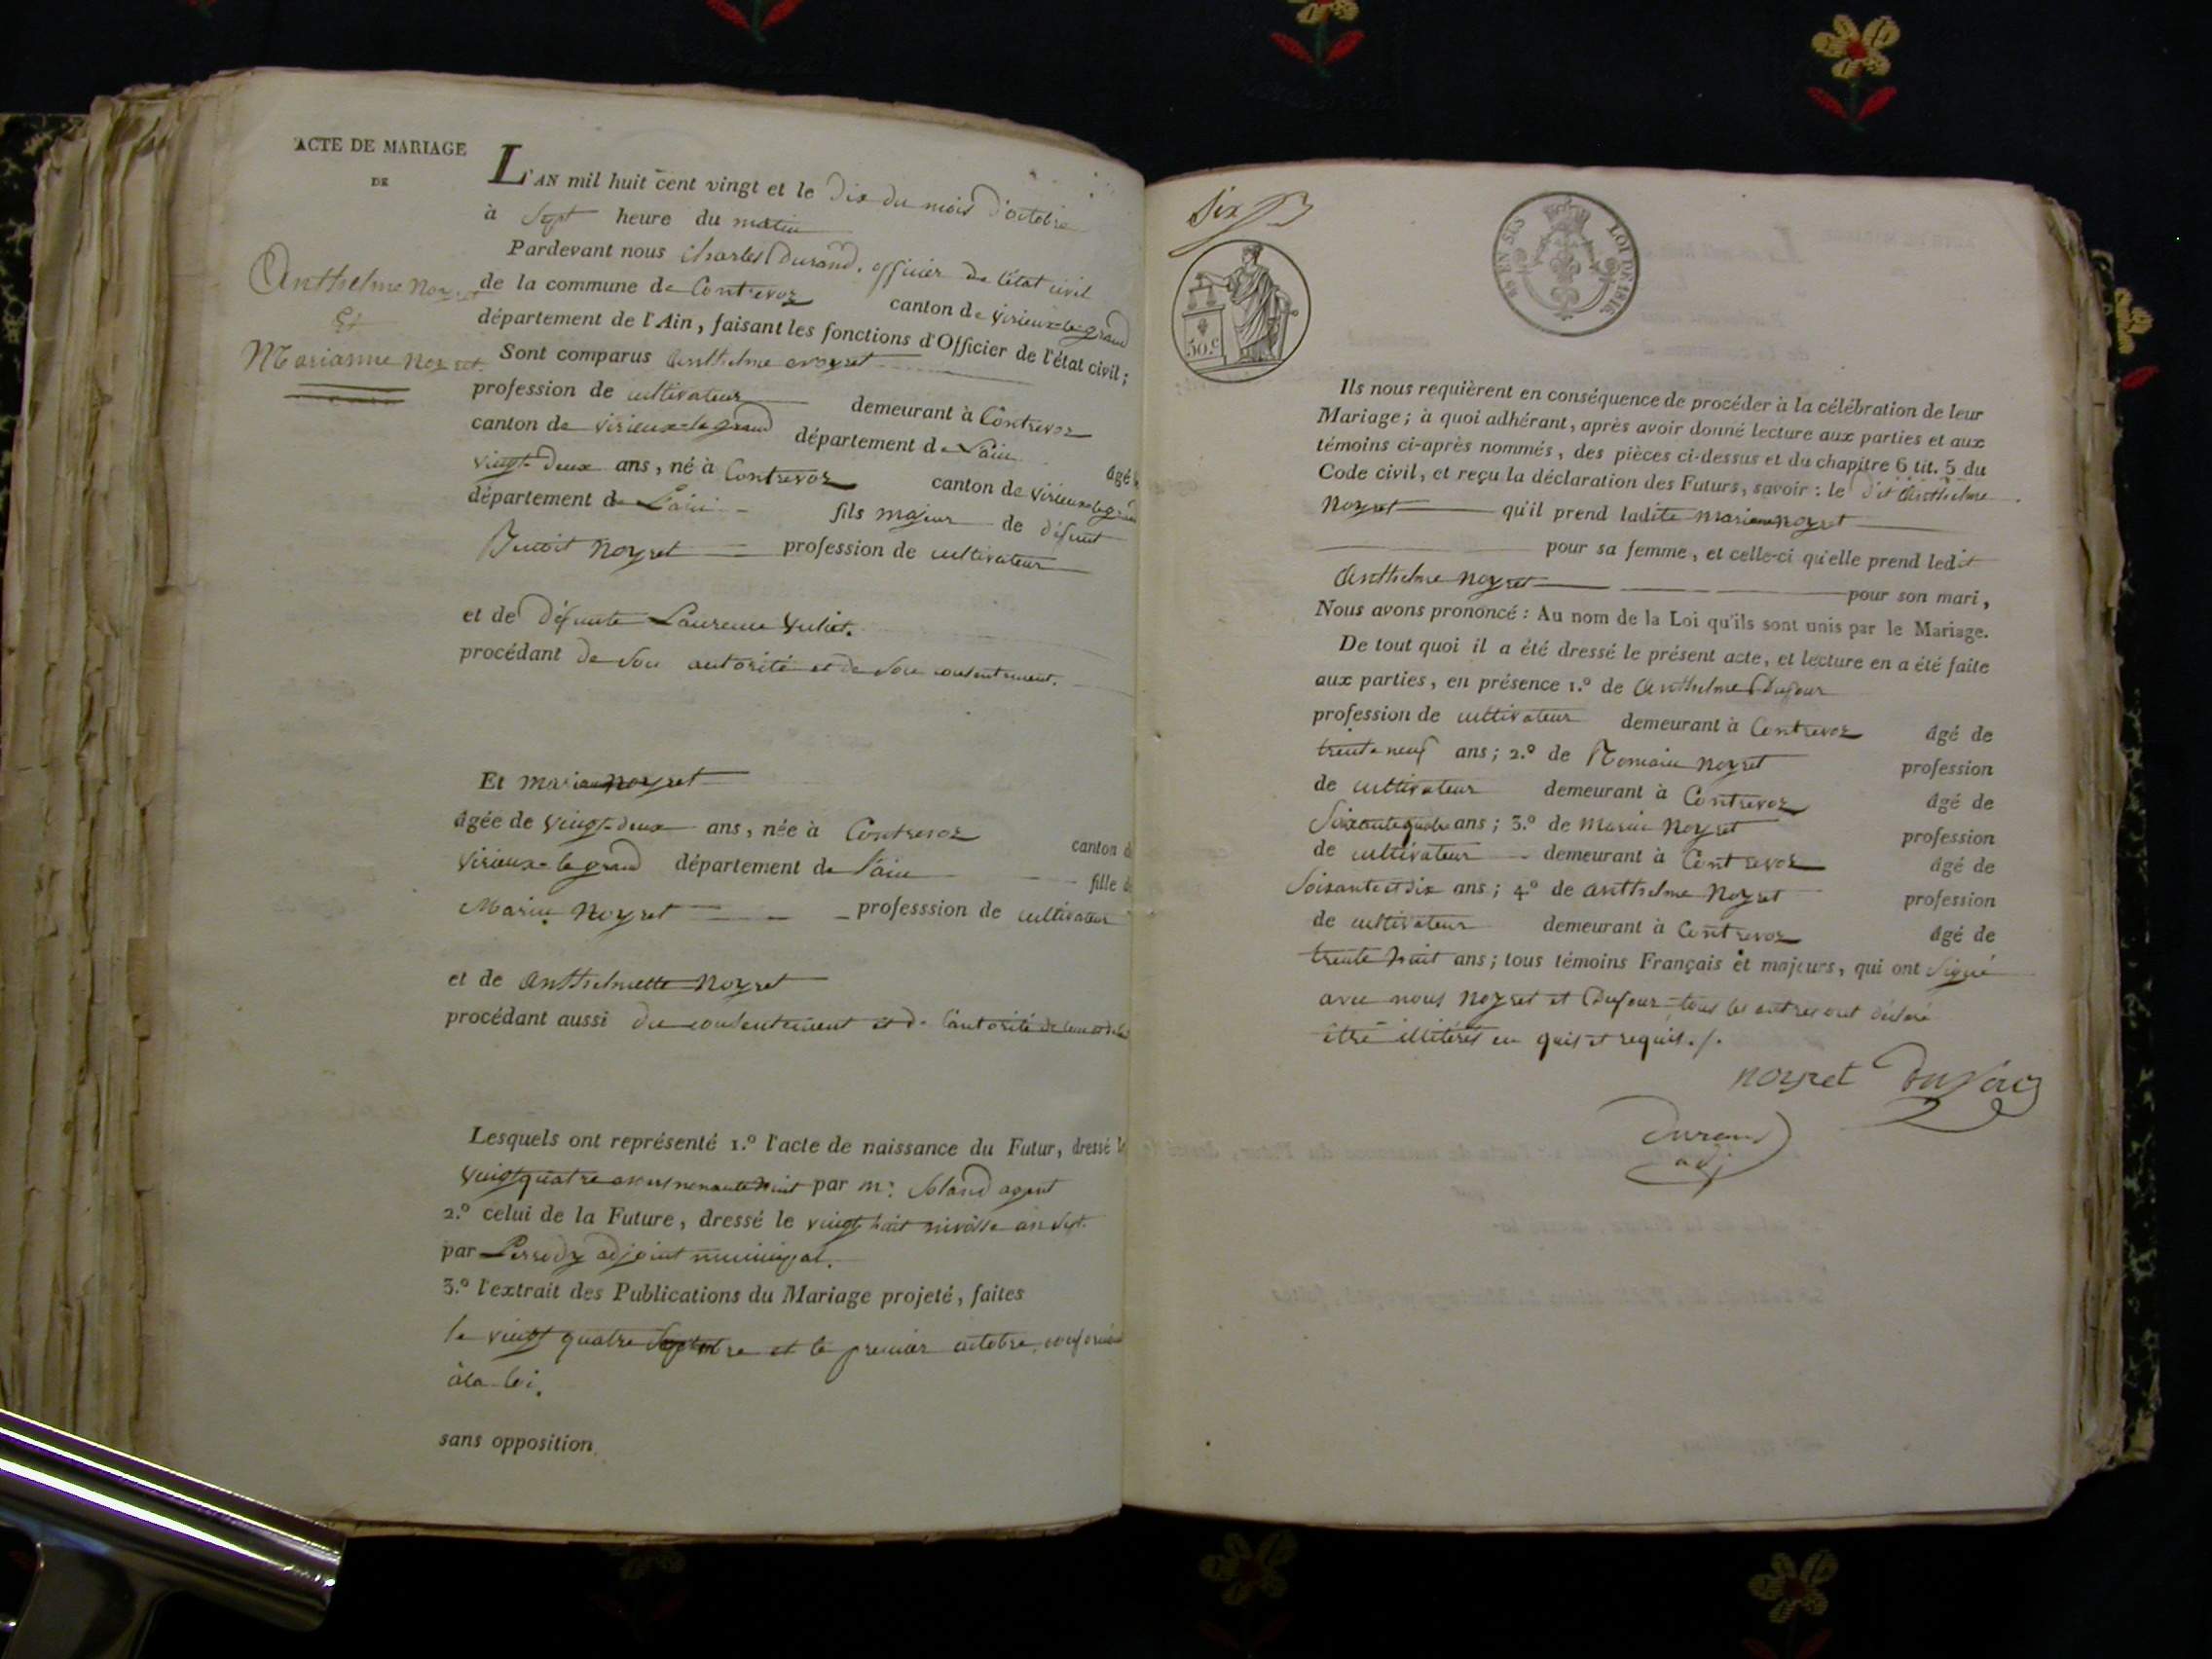 ACTE DE MARIAGE
DE
Anthelme Noyret
Et
Marianne Noyret
L'AN mil huit cent vingt et le dix du mois d'octobre
à Sept heure du matin
Pardevant nous Charles Durand, officier de l'état civil
de la commune de Contrevoz canton de virieux-le-grand
département de l'Ain, faisant les fonctions d'Officier de l'état civil;
Sont comparus Anthelme noyret
profession de cultivateur demeurant à Contrevoz
canton de virieux-le-grand département de L'ain âgé
vingt-deux ans, né à Contrevoz canton de virieux-le-grand
département de L'ain fils majeur de défunt
Benoit Noyret profession de cultivateur
et de défunte Laurence
procédant de son autorité et de son consentement.
Et marianne noyret
âgée de vingt-deux ans, née à Contrevoz canton
virieux-le grand département de l'ain fille
Marin Noyret professsion de cultivateur
et de Anthelmette Noyret
procédant aussi du consentement et de l'autorité de
Lesquels ont représenté 1.º l'acte de naissance du Futur, dressé le
vingt quatre par mr. Soland agent
2.º celui de la Future, dressé le vingt huit nivôse an sept.
par Perrody adjoint municipal.
3.º l'extrait des Publications du Mariage projeté, faites
le vingt quatre Septembre et le premier octobre, conformément
à la loi.
sans opposition
Six
50.c
EN SUS
LOI DE 1816
Ils nous requièrent en conséquence de procéder à la célébration de leur
Mariage; à quoi adhérant, après avoir donné lecture aux parties et aux
témoins ci-après nommés, des pièces ci-dessus et du chapitre 6 tit. 5 du
Code civil, et reçu la déclaration des Futurs, savoir: le dit Anthelme
Noyret qu'il prend ladite marianne noyret
pour sa femme, et celle-ci qu'elle prend ledit
Anthelme Noyret pour son mari,
Nous avons prononcé: Au nom de la Loi qu'ils sont unis par le Mariage.
De tout quoi il a été dressé le présent acte, et lecture en a été faite
aux parties, en présence 1.º de Anthelme Dufour
profession de cultivateur demeurant à Contrevoz âgé de
trente neuf ans; 2.º de Romain Noyret profession
de cultivateur demeurant à Contrevoz âgé de
Soixante quatre ans; 3.º de Marin Noyret profession
de cultivateur demeurant à Contrevoz âgé de
Soixante et dix ans; 4.º de Anthelme Noyret profession
de cultivateur demeurant à Contrevoz âgé de
trente huit ans; tous témoins Français et majeurs, qui ont signé
avec nous Noyret et Dufour tous les autres ont déclaré
être illitérés en quis et requis./.
noyret Dufour
Durand
adj